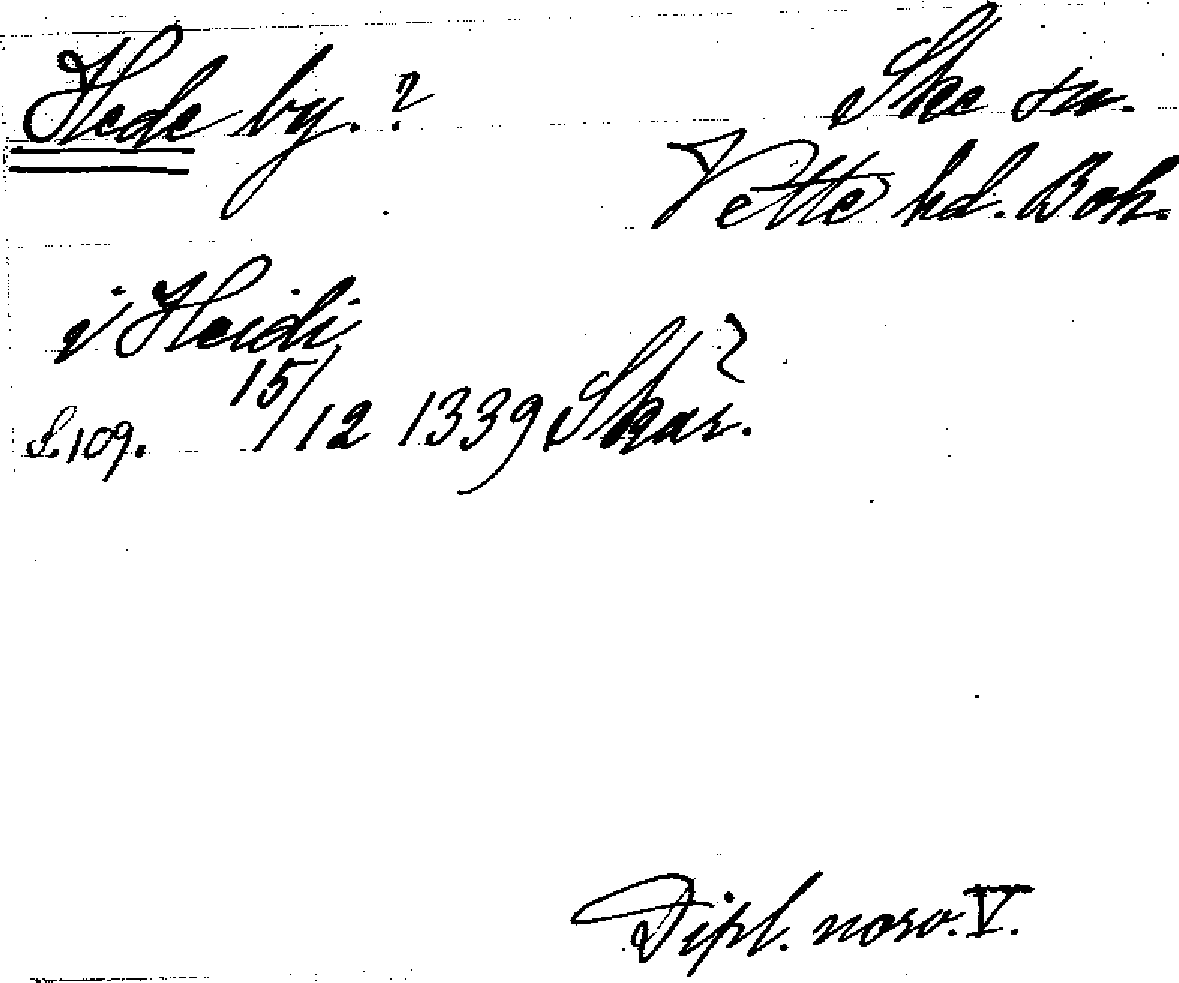 Hede by. ?
Skee sn.
Vette hd. Boh.
i Heidi
S. 109. 15/12 1339 Skar. ?
Dipl. norv. V.